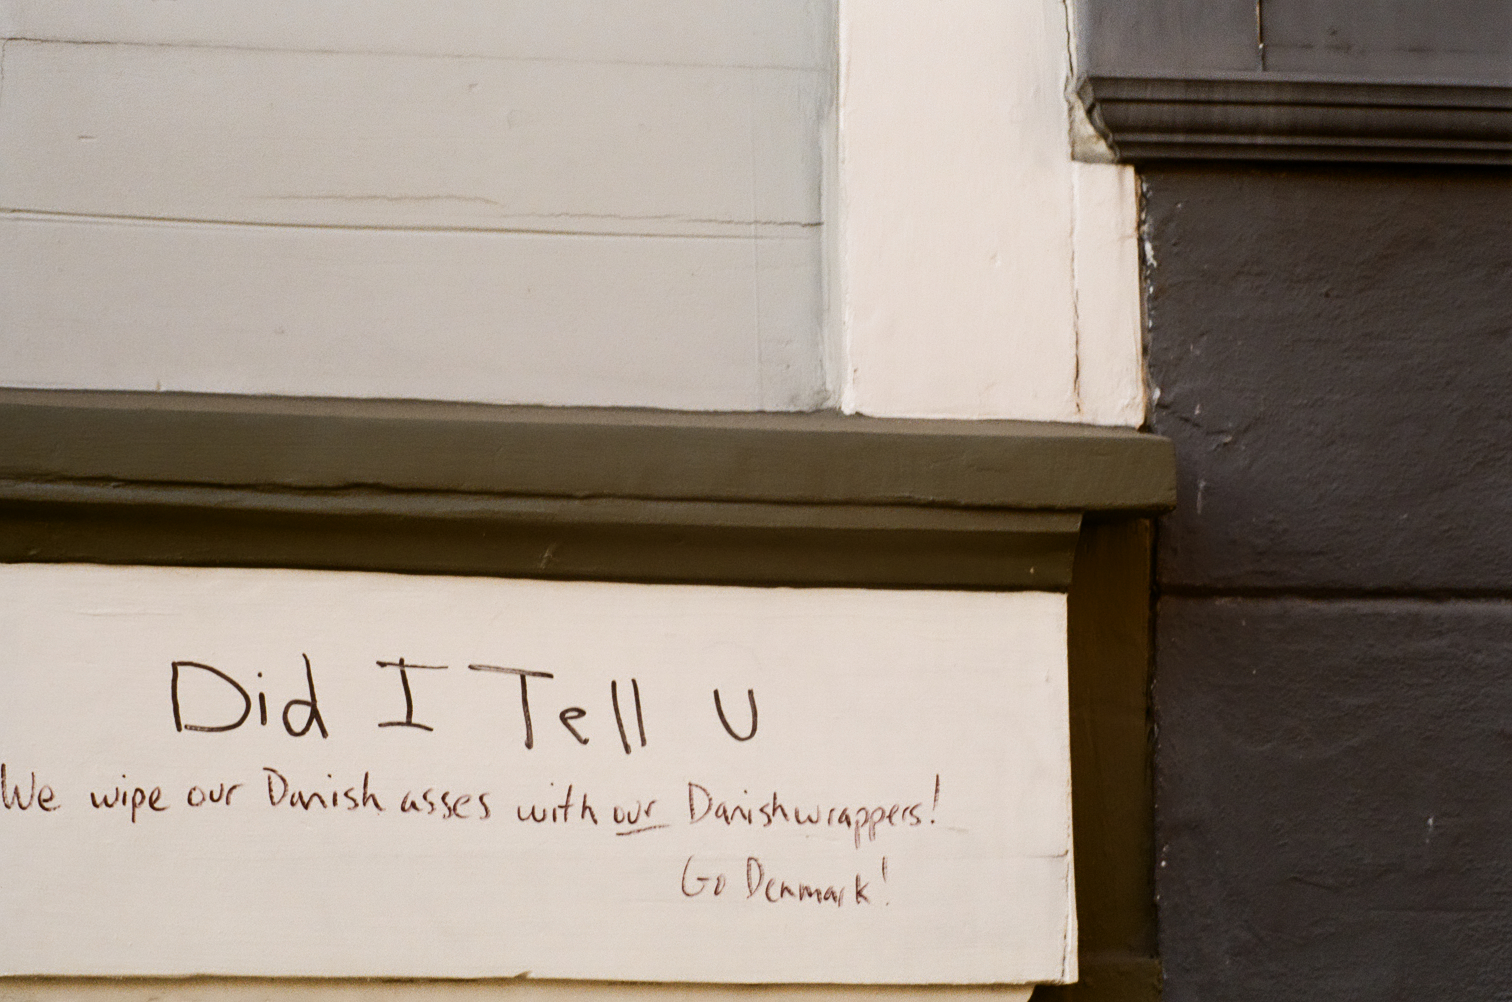 Did I Tell U
We wipe our Danish asses with our Danishwrappers!
Go Denmark!